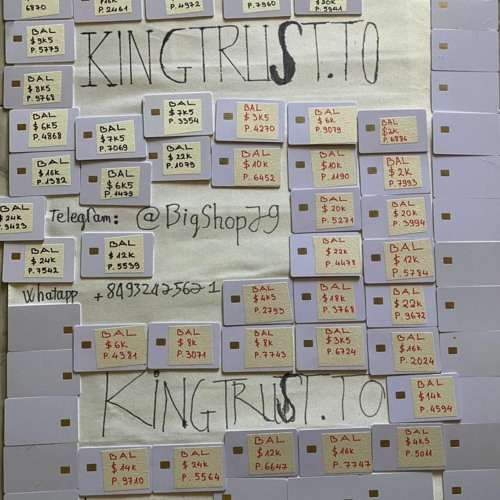 6870
$16K
P. 2461
P. 4972
P. 7960
$20K
P. 5941
BAL
$9K5
P. 5779
KINGTRUST.TO
BAL
$8K5
P. 9768
BAL
$6K5
P. 4868
BAL
$7K5
P. 7069
BAL
$7K5
P. 3354
BAL
$3K5
P. 4270
BAL
$6K
P. 9079
BAL
$2K
P. 6886
BAL
$16K
P. 1982
BAL
$6K5
P. 1479
BAL
$22K
P. 1079
BAL
$10K
P. 6452
BAL
$10K
P. 1190
BAL
$2K
P. 7993
BAL
$24K
P. 9423
Telegram: @BigShop79
BAL
$20K
P. 5271
BAL
$20K
P. 3994
BAL
$24K
P. 7542
BAL
$12K
P. 5539
BAL
$22K
P. 4478
BAL
$12K
P. 5784
Whatapp +84932475621
BAL
$4K5
P. 2793
BAL
$18K
P. 3768
BAL
$22K
P. 9672
BAL
$6K
P. 4381
BAL
$8K
P. 3071
BAL
$8K
P. 7743
BAL
$3K5
P. 6724
BAL
$16K
P. 2024
KINGTRUST.TO
BAL
$14K
P. 4594
BAL
$14K
P. 9710
BAL
$24K
P. 5564
BAL
$12K
P. 6647
BAL
$16K
P. 7747
BAL
$4K5
P. 5011